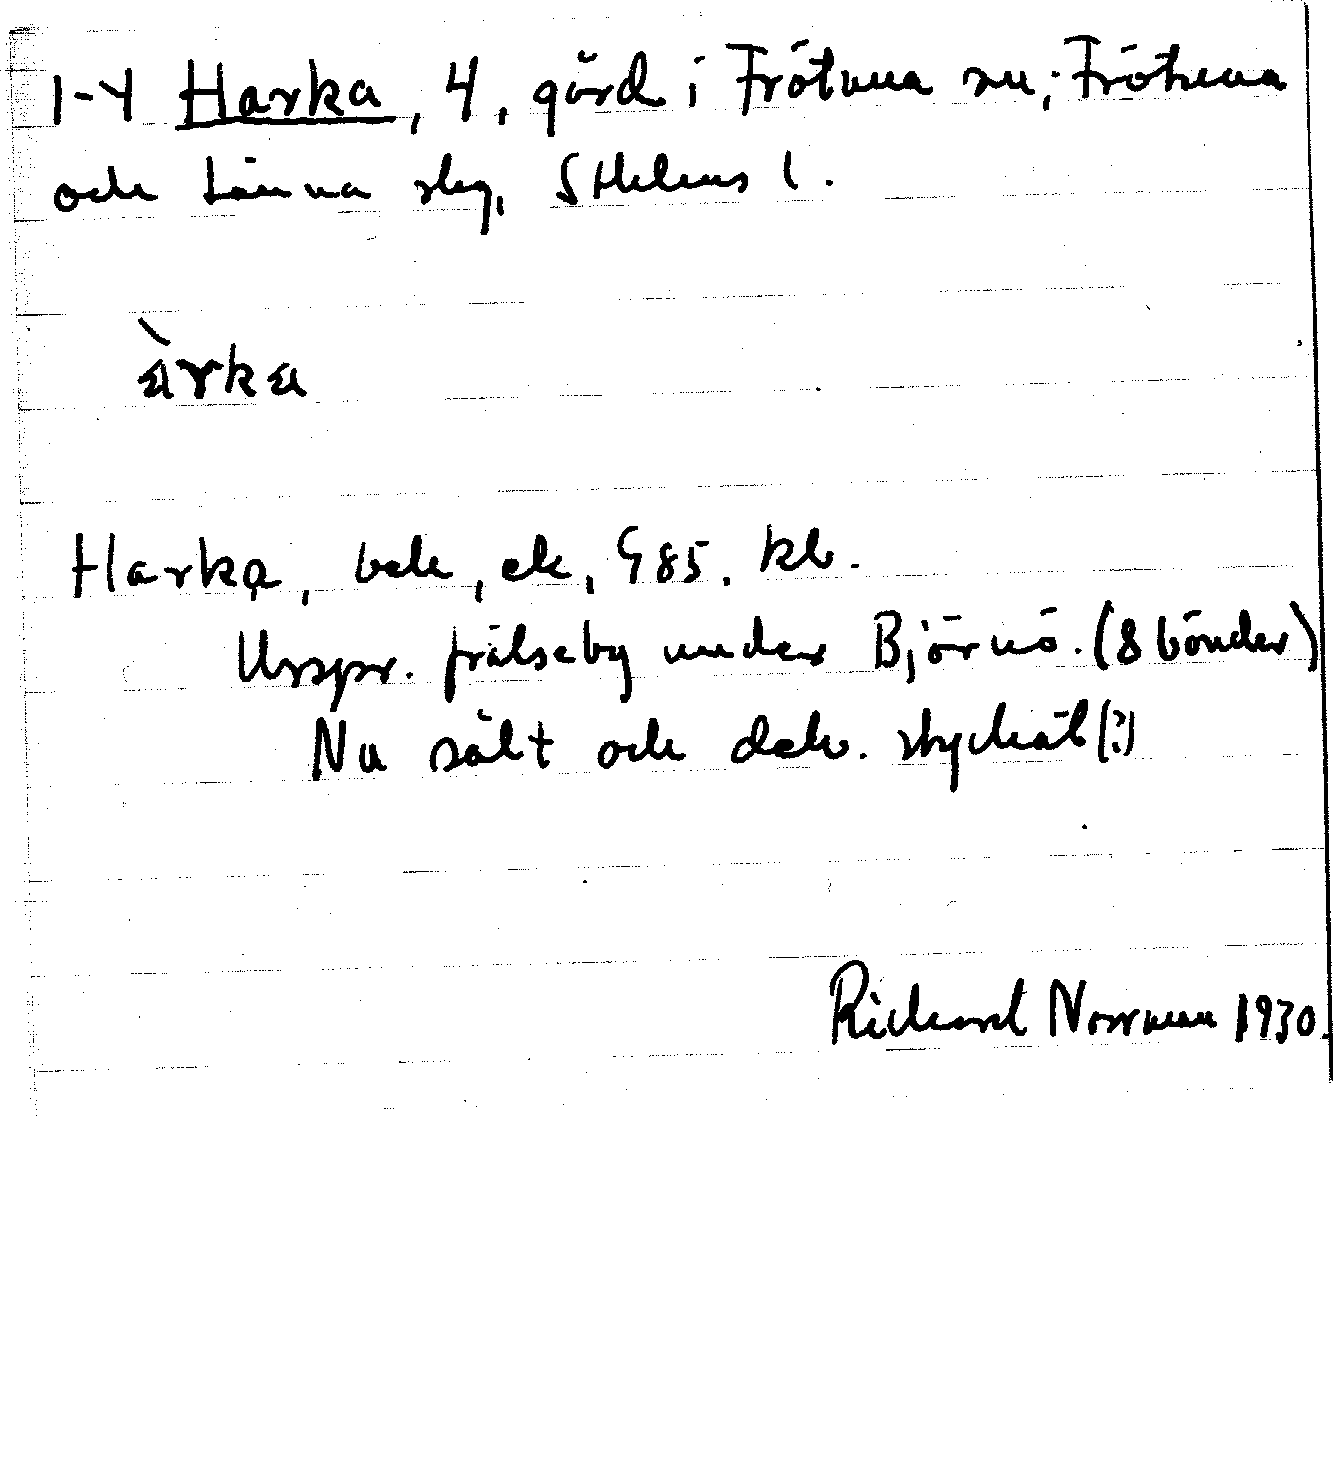 1-4 Harka, 4, gård i Frötuna sn; Frötuna
och Länna skg, S Helens l.
àrka
Harka, beb, ek, G 85. kb.
Urspr. frälseby under Björnö. (8 bönder)
Nu sålt och delv. styckat (?)
Rickard Norrman 1930.